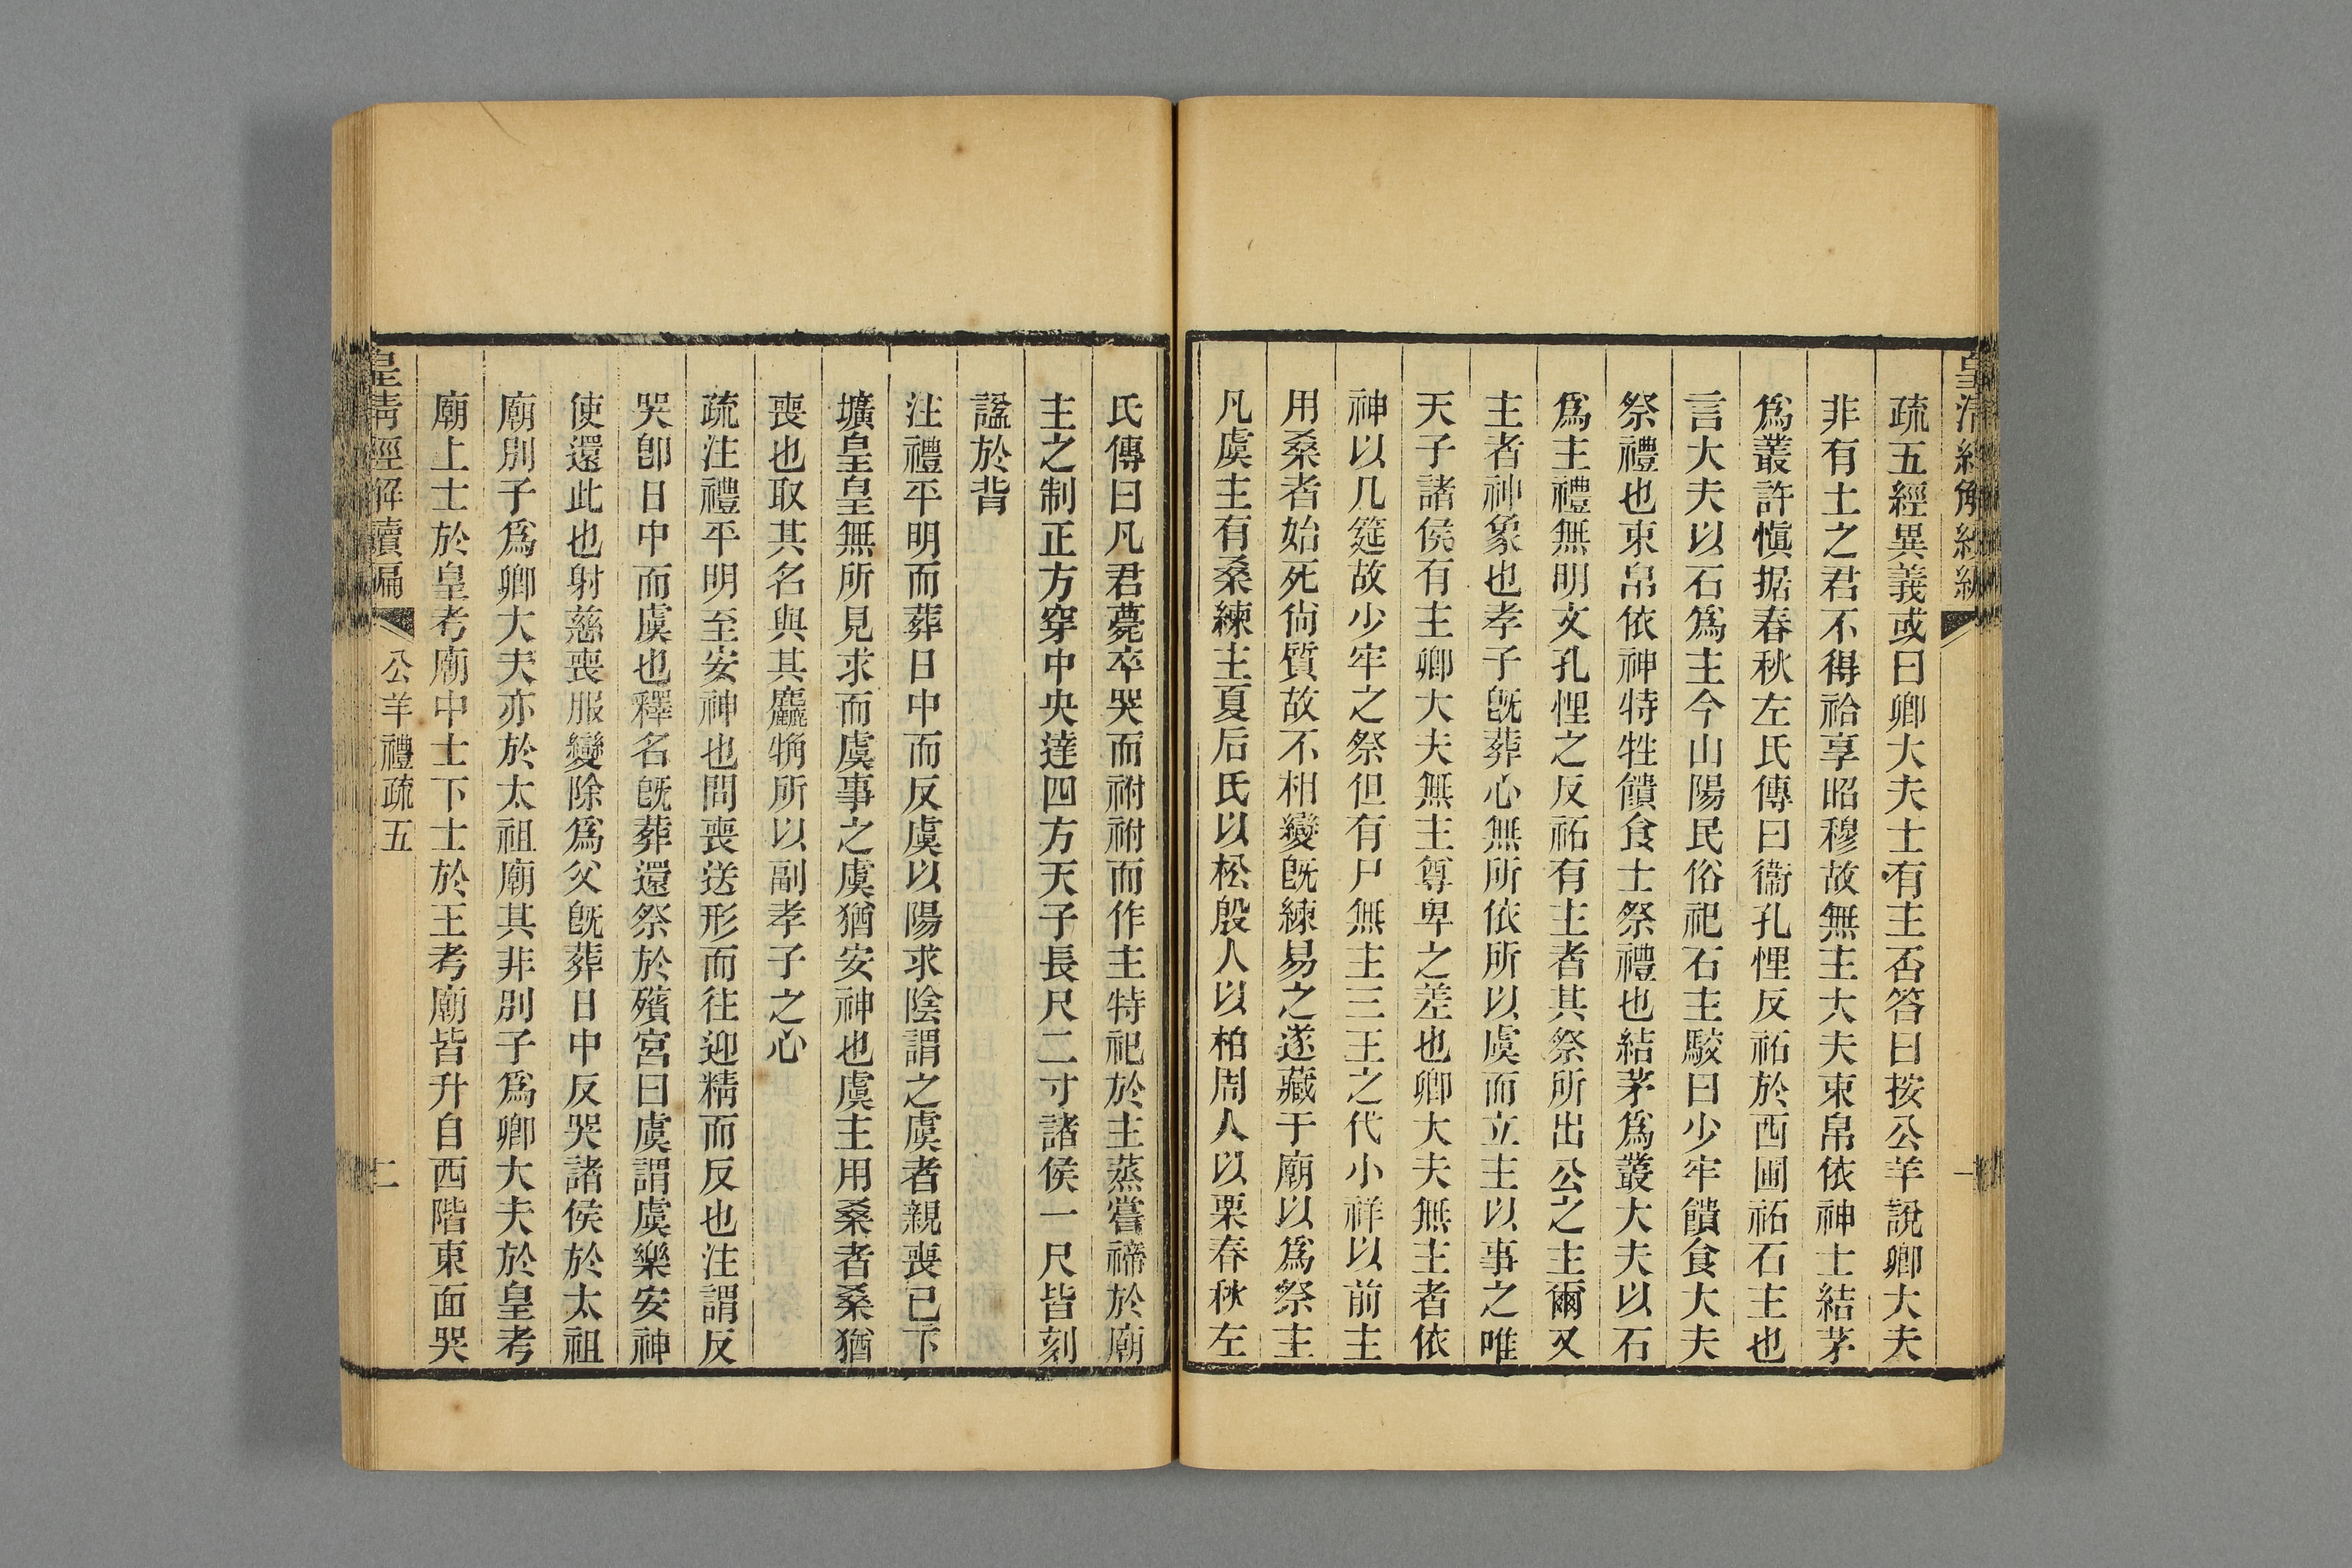 疏五經異義或曰卿大夫士有主否答曰按公羊說卿大夫
非有土之君不得祫享昭穆故無主大夫束帛依神士結茅
爲叢許愼据春秋左氏傳曰衞孔悝反祏於西圃祏石主也
言大夫以石爲主今山陽民俗祀石主駮曰少牢饋食大夫
祭禮也束帛依神特牲饋食士祭禮也結茅爲叢大夫以石
爲主禮無明文孔悝之反祏有主者其祭所出公之主爾又
主者神象也孝子旣葬心無所依所以虞而立主以事之唯
天子諸侯有主卿大夫無主尊卑之差也卿大夫無主者依
神以几筵故少牢之祭但有尸無主三王之代小祥以前主
用桑者始死尙質故不相變旣練易之遂藏于廟以爲祭主
凡虞主有桑練主夏后氏以松殷人以柏周人以栗春秋左
氏傳曰凡君薨卒哭而祔祔而作主特祀於主蒸嘗禘於廟
主之制正方穿中央達四方天子長尺二寸諸侯一尺皆刻
諡於背
注禮平明而葬日中而反虞以陽求陰謂之虞者親喪已下
壙皇皇無所見求而虞事之虞猶安神也虞主用桑者桑猶
喪也取其名與其麤觕所以副孝子之心
疏注禮平明至安神也問喪送形而往迎精而反也注謂反
哭卽日中而虞也釋名旣葬還祭於殯宮曰虞謂虞樂安神
使還此也射慈喪服變除爲父旣葬日中反哭諸侯於太祖
廟別子爲卿大夫亦於太祖廟其非別子爲卿大夫於皇考
廟上士於皇考廟中士下士於王考廟皆升自西階東面哭
皇清經解續編
公羊禮疏五
二